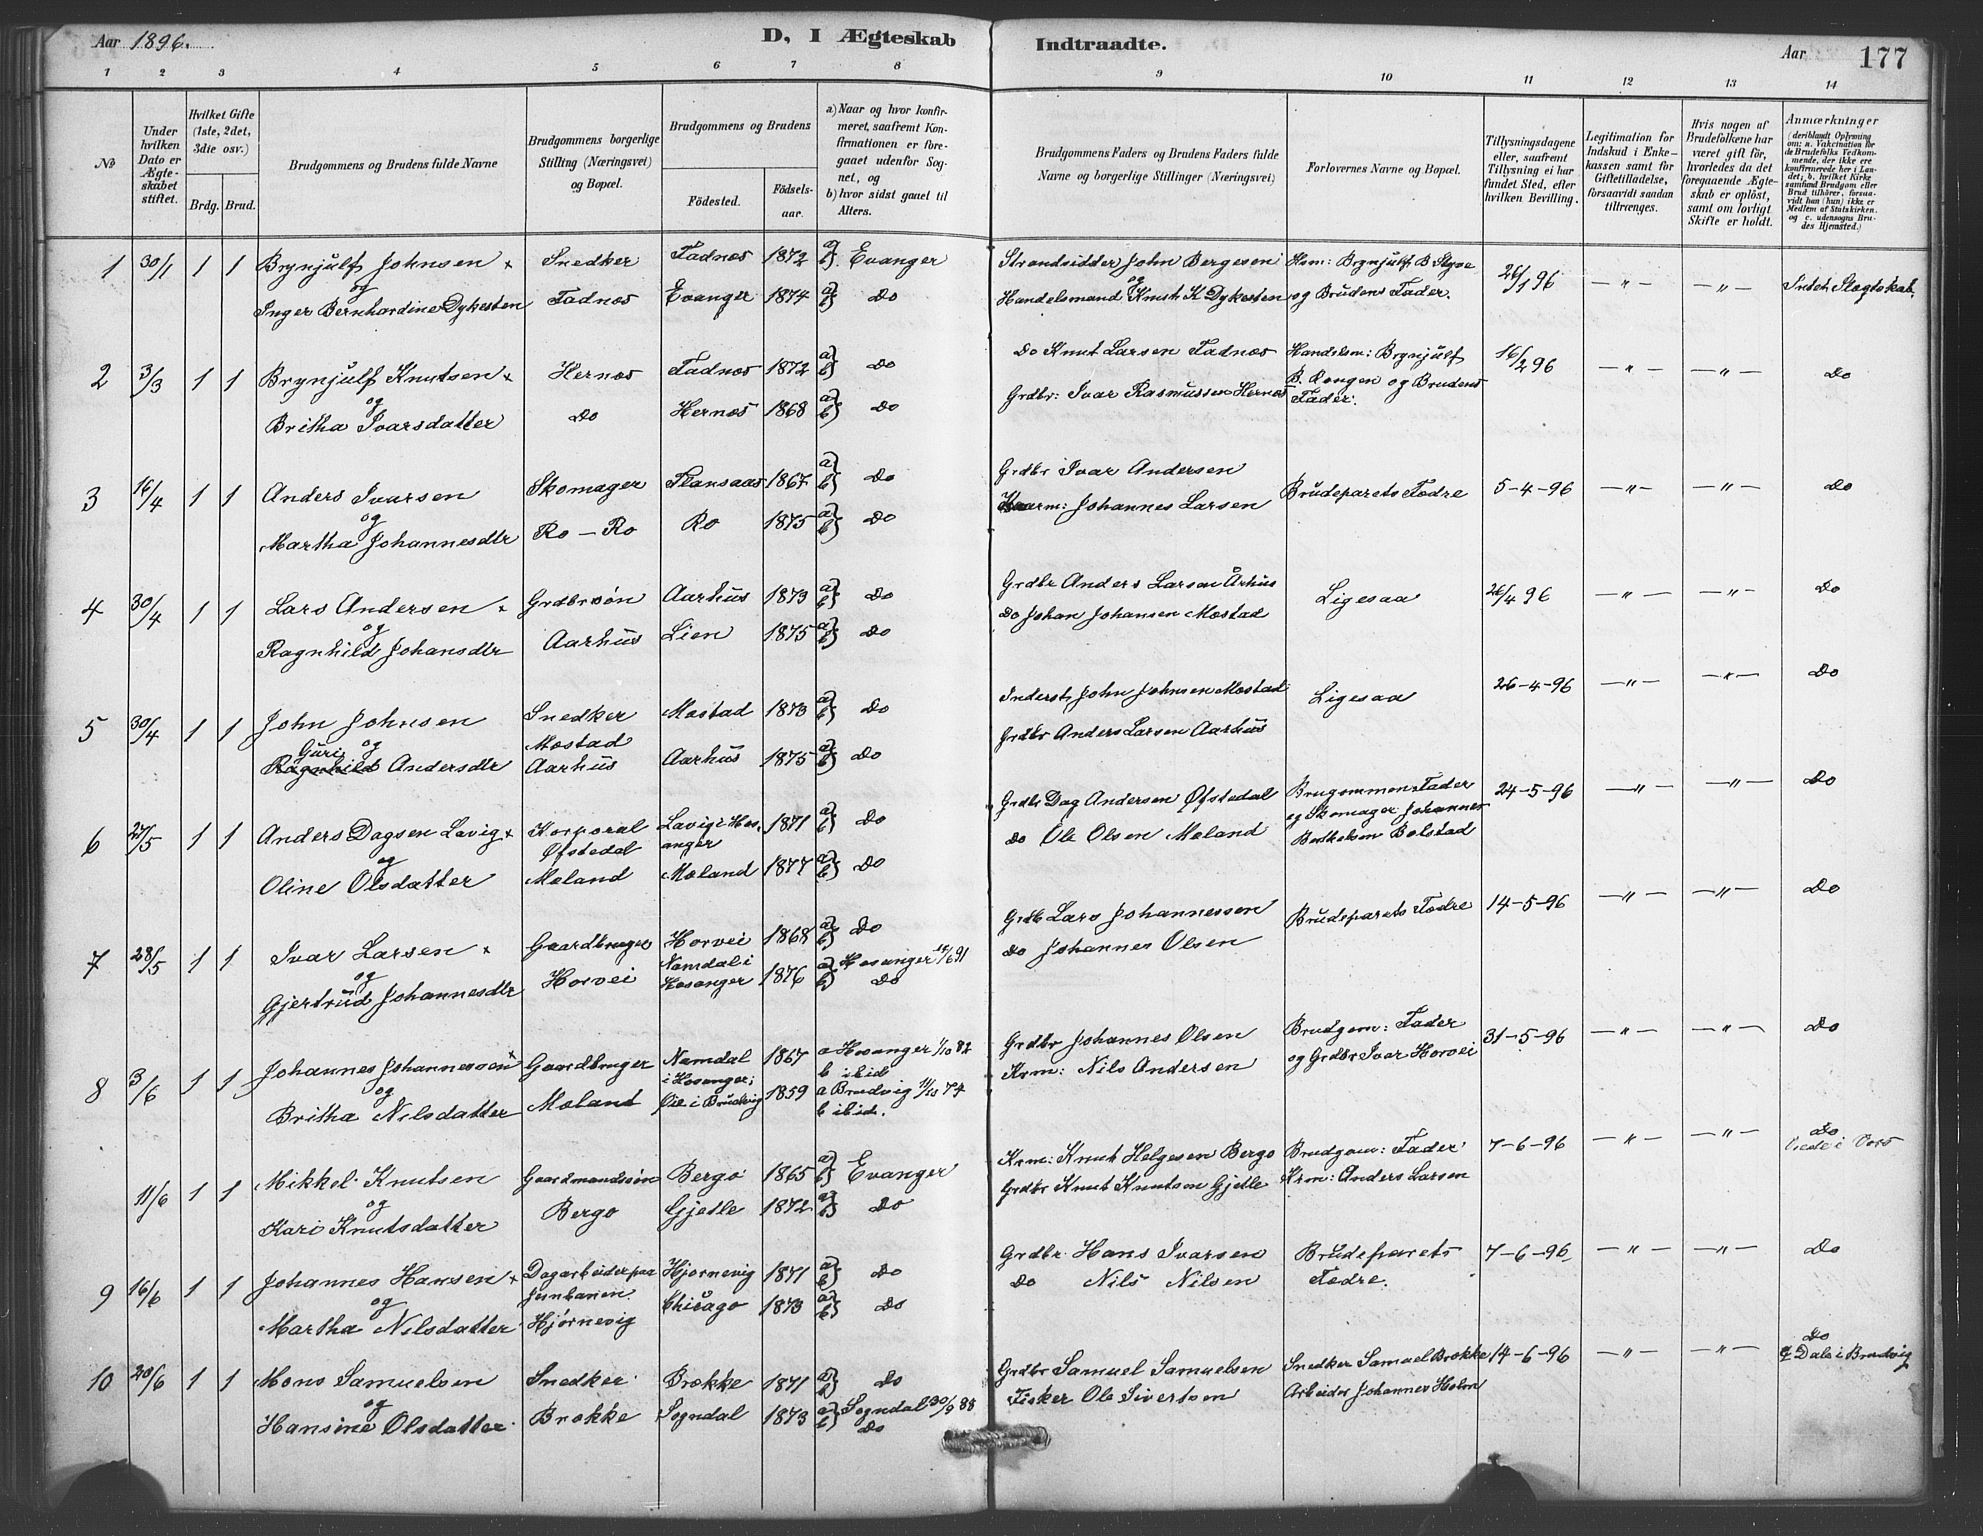 Aar 1896.
D, I Ægteskab Indtraadte.
Aar 177
1 2 3 4 5 6 7 8 9 10 11 12 13 14
No
Under hvilken Dato er Ægteskabet stiftet.
Hvilket Gifte (1ste, 2det, 3die osv.)
Brdg. Brud.
Brudgommens og Brudens fulde Navne
Brudgommens borgerlige Stilling (Næringsvei) og Bopæl.
Brudgommens og Brudens
Födested. Födsels-aar.
a) Naar og hvor konfirmeret, saafremt Konfirmationen er foregaaet udenfor Sognet, og
b) hvor sidst gaaet til Alters.
Brudgommens Faders og Brudens Faders fulde Navne og borgerlige Stillinger (Næringsvei)
Forlovernes Navne og Bopæl.
Tillysningsdagene eller, saafremt Tillysning ei har fundet Sted, efter hvilken Bevilling.
Legitimation for Indskud i Enkekassen samt for Giftetilladelse, forsaavidt saadan tiltrænges.
Hvis nogen af Brudefolkene har været gift för, hvorledes da det foregaaende Ægteskab er oplöst, samt om lovligt Skifte er holdt.
Anmærkninger
(deriblandt Oplysning om: a. Vakcination for de Brudefolks Vedkommende, der ikke ere konfirmerede her i Landet; b. hvilket Kirkesamfund Brudgom eller Brud tilhörer, forsaavidt han (hun) ikke er Medlem af Statskirken. og c. udensogns Brudes Hjemsted.)
1 30/1 1 1 Brynjulf Johnsen × Snedker Fadnes 1872 a) b) Evanger Strandsidder John Bergesen Hsm: Brynjulf B. Styve 26/1 96 — " — — " — Intet Slegtskab.
og
Inger Bernhardine Dykesten Fadnes Evanger 1874 a) b) Do Handelsmand Knut K Dykesten og Brudens Fader.
2 3/3 1 1 Brynjulf Knutsen × Hernes Fadnes 1872 a) b) Do Do Knut Larsen Fadnes Handelsm: Brynjulf 16/2 96 — " — — " — Do
og
Britha Ivarsdatter Do Hernes 1868 a) b) Do Grdbr: Ivar Rasmussen Hernes B. Rongen og Brudens Fader.
3 16/4 1 1 Anders Ivarsen Skomager 1867 a) b) Do Grdbr Ivar Andersen Brudeparets Fædre 5-4-96 — " — — " — Do
og
Martha Johannesdtr Ro — Ro Ro 1875 a) b) Do Johannes Larsen
4 30/4 1 1 Lars Andersen × Grdbrsön Aarhus 1873 a) b) Do Grdbr Anders Larsen Århus Ligesaa 26/4 96 — " — — " — Do
og
Ragnhild Johansdtr Aarhus Lien 1875 a) b) Do Do Johan Johansen Mostad
5 30/4 1 1 John Johnsen Snedker Mostad 1873 a) b) Do Inderst John Johnsen Mostad Ligesaa 26-4-96 — " — — " — Do
Guri og Mostad
Ragnhild Andersdtr Aarhus Aarhus 1875 a) b) Do Grdbr Anders Larsen Aarhus
6 27/5 1 1 Anders Dagsen Lavig × Korporal Lavig i Hosanger 1871 a) b) Do Grdbr Dag Andersen Öfstedal Brugommens Fader 24-5-96 — " — — " — Do
og Öfstedal og Skomager Johannes
Oline Olsdatter Mæland Mæland 1877 a) b) Do Do Ole Olsen Mæland Berthelsen Bolstad
7 28/5 1 1 Ivar Larsen × Gaardbruger Horvei 1868 a) b) Do Grdb Lars Johannessen Brudeparets Fædre 14-5-96 — " — — " — Do
og
Gjertrud Johannesdtr Horvei Namdal i Hosanger 1876 a) b) Hosanger 91 Do Do Johannes Olsen
8 3/6 1 1 Johannes Johannessen × Gaardbruger Namdal i Hosanger; 1867 a Hosanger 1/10 82 b ibid Grdbr Johannes Olsen Brudgom: Fader 31-5-96 — " — — " — Do
og
Britha Nilsdatter Mæland Öie i Brudvig 1859 a Brudvig 74 b ibid. Krm: Nils Andersen og Grdbr Ivar Horvei
11/6 1 1 Mikkel Knutsen Gaardmandssön Bergo 1865 a) b) Evanger Krm: Knut Helgesen Bergo Brudgom: Fader 7-6-96 — " — — " — Do
og
Kari Knutsdatter Bergo Gjetle 1872 a) b) Do Grdbr Knut Knutsen Gjetle Krm: Anders Larsen
9 16/6 1 1 Johannes Hansen × Dagarbeider paa Hjörnevig 1871 a) b) Do Grdbr Hans Ivarsen Brudeparets 7-6-96 — " — — " — Do
og Jernbanen
Martha Nilsdatter Hjörnevig Chicago 1873 a) b) Do Do Nils Nilsen Fædre.
10 20/6 1 1 Mons Samuelsen Snedker Brække 1871 a) b) Do Grdbr Samuel Samuelsen Snedker Samuel Brække 14-6-96 — " — — " — Do
og Dale i Brudvig
Hansine Olsdatter Brække Sogndal 1873 a) b) Sogndal 30/9 88 Do Fisker Ole Sivertsen Arbeider Johannes Holm